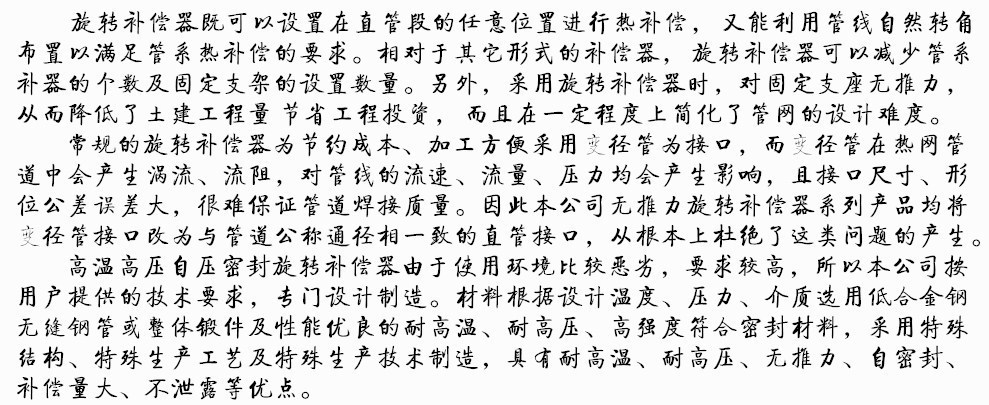 旋转补偿器既可以设置在直管段的任意位置进行热补偿，又能利用管线自然转角
布置以满足管系热补偿的要求。相对于其它形式的补偿器，旋转补偿器可以减少管系
补器的个数及固定支架的设置数量。另外，采用旋转补偿器时，对固定支座无推力，
从而降低了土建工程量 节省工程投资，而且在一定程度上简化了管网的设计难度。
常规的旋转补偿器为节约成本、加工方便采用变径管为接口，而变径管在热网管
道中会产生涡流、流阻，对管线的流速、流量、压力均会产生影响，且接口尺寸、形
位公差误差大，很难保证管道焊接质量。因此本公司无推力旋转补偿器系列产品均将
变径管接口改为与管道公称通径相一致的直管接口，从根本上杜绝了这类问题的产生。
高温高压自压密封旋转补偿器由于使用环境比较恶劣，要求较高，所以本公司按
用户提供的技术要求，专门设计制造。材料根据设计温度、压力、介质选用低合金钢
无缝钢管或整体锻件及性能优良的耐高温、耐高压、高强度符合密封材料，采用特殊
结构、特殊生产工艺及特殊生产技术制造，具有耐高温、耐高压、无推力、自密封、
补偿量大、不泄露等优点。